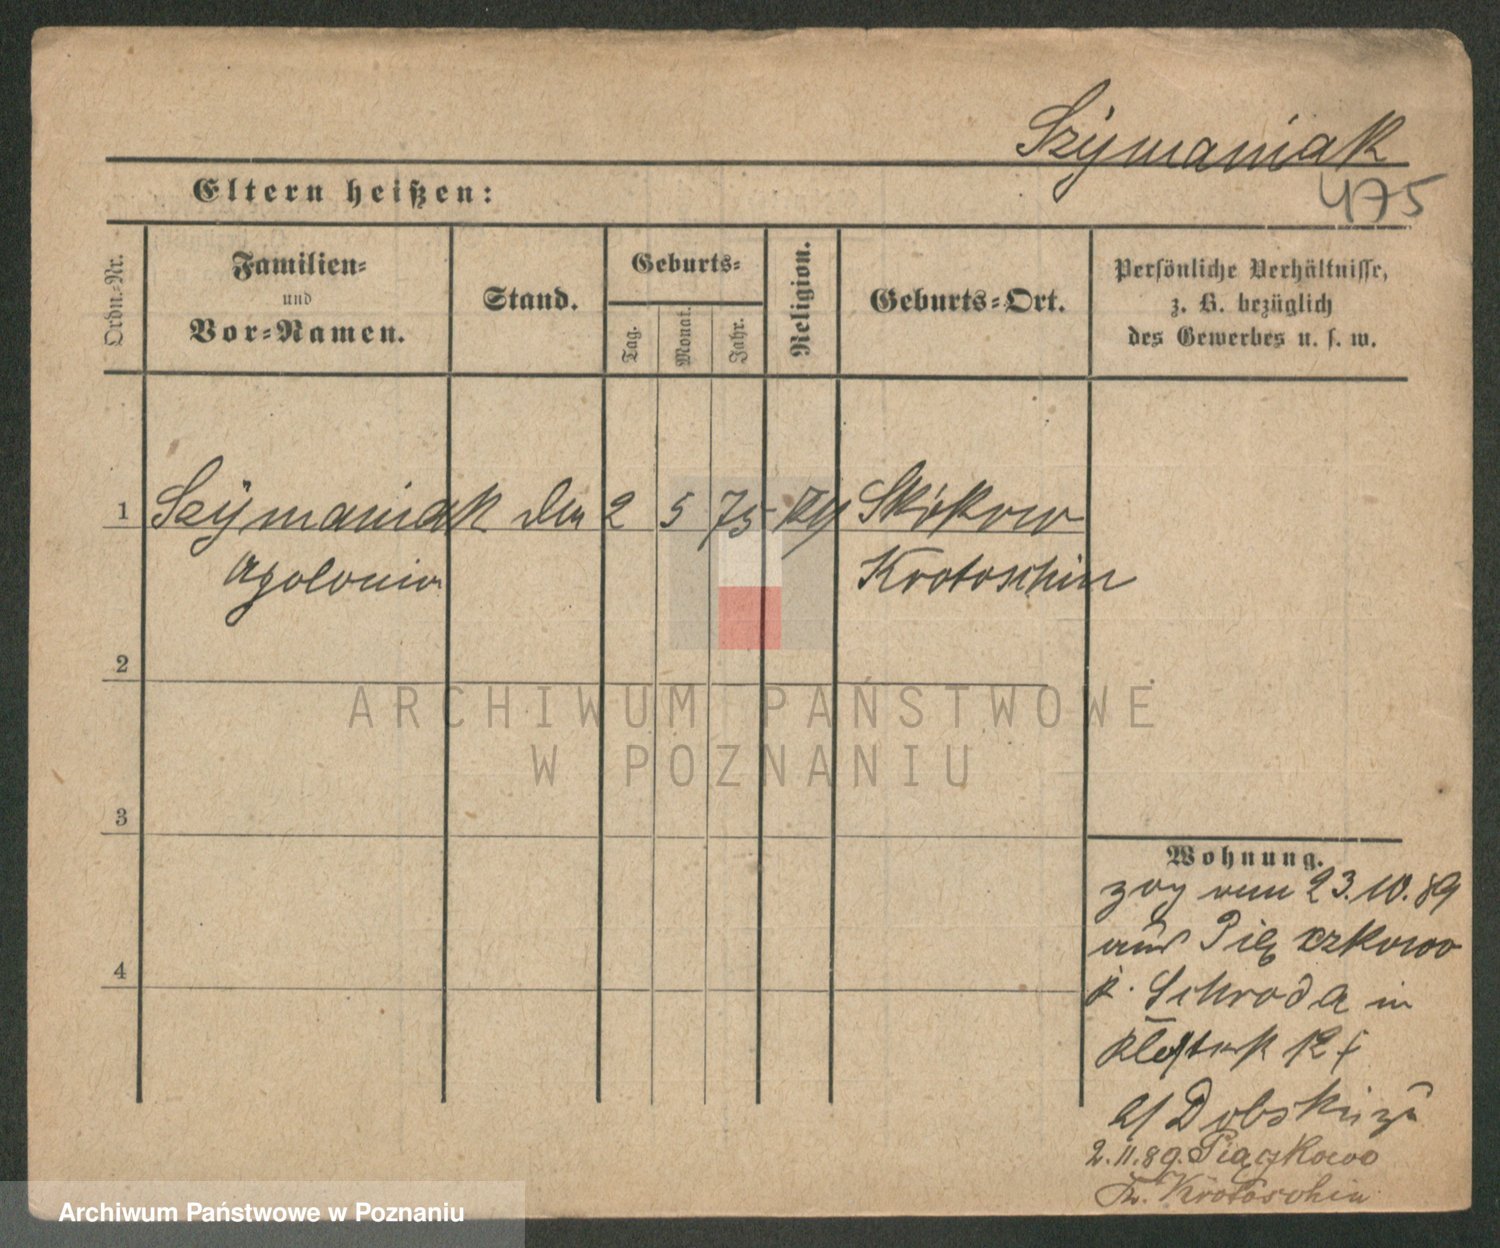 Szÿmaniak
475
Eltern heißen:
Ordn.-Nr.
Familien-
und
Vor-Namen.
Stand.
Geburts-
Tag.
Monat.
Jahr.
Religion.
Geburts-Ort.
Persönliche Verhältnisse,
z. B. bezüglich
des Gewerbes u. s. w.
1 Szÿmaniak 2 5 75 Skokow
Apolonia Krotoschin
2
3
4
Wohnung.
zog vom 23.10.89
aus
k. Schroda in
12
b/ Dobski
2.11.89.
Kr. Krotoschin
ARCHIWUM PAŃSTWOWE
W POZNANIU
Archiwum Państwowe w Poznaniu